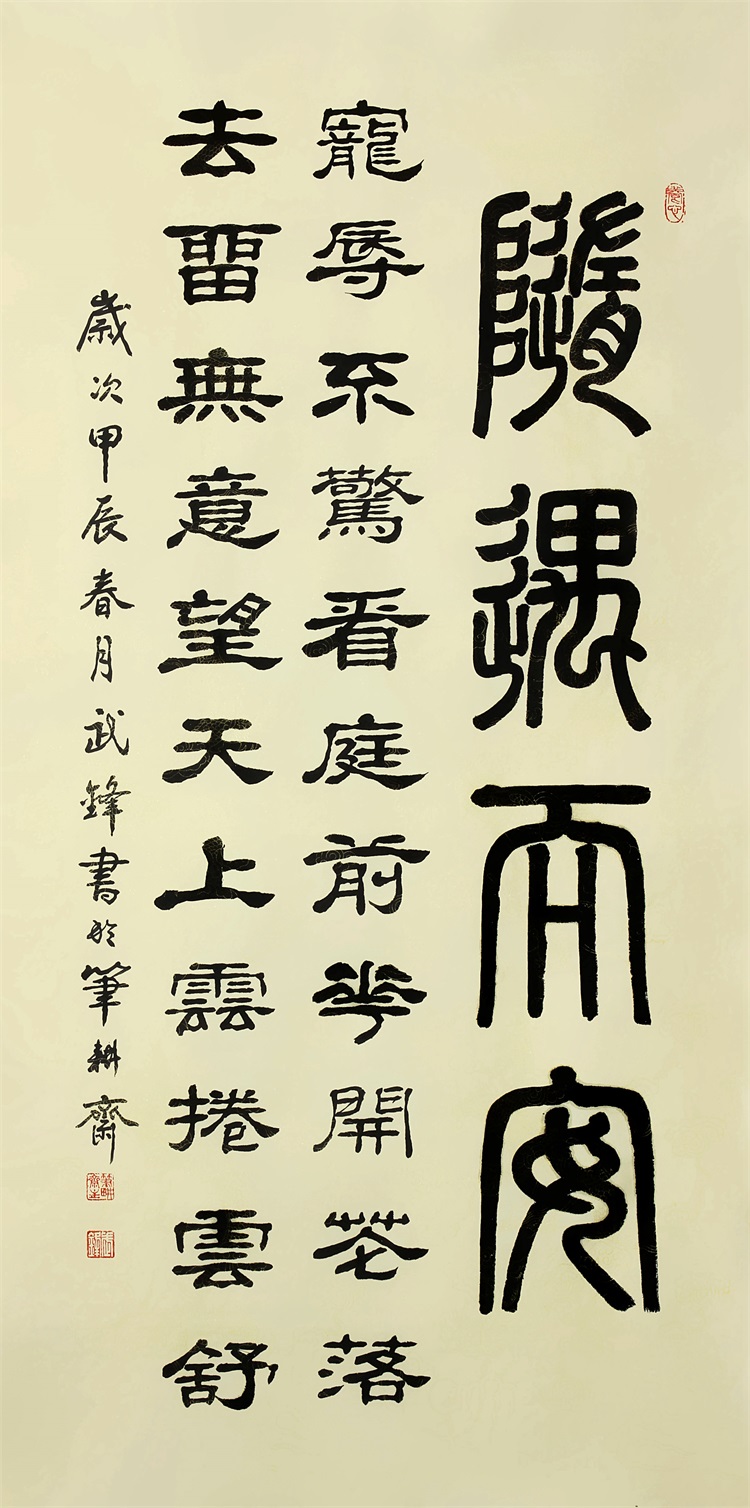 隨遇而安
寵辱不驚看庭前華開花落
去留無意望天上雲捲雲舒
歲次甲辰春月武鋒書於筆耕齋